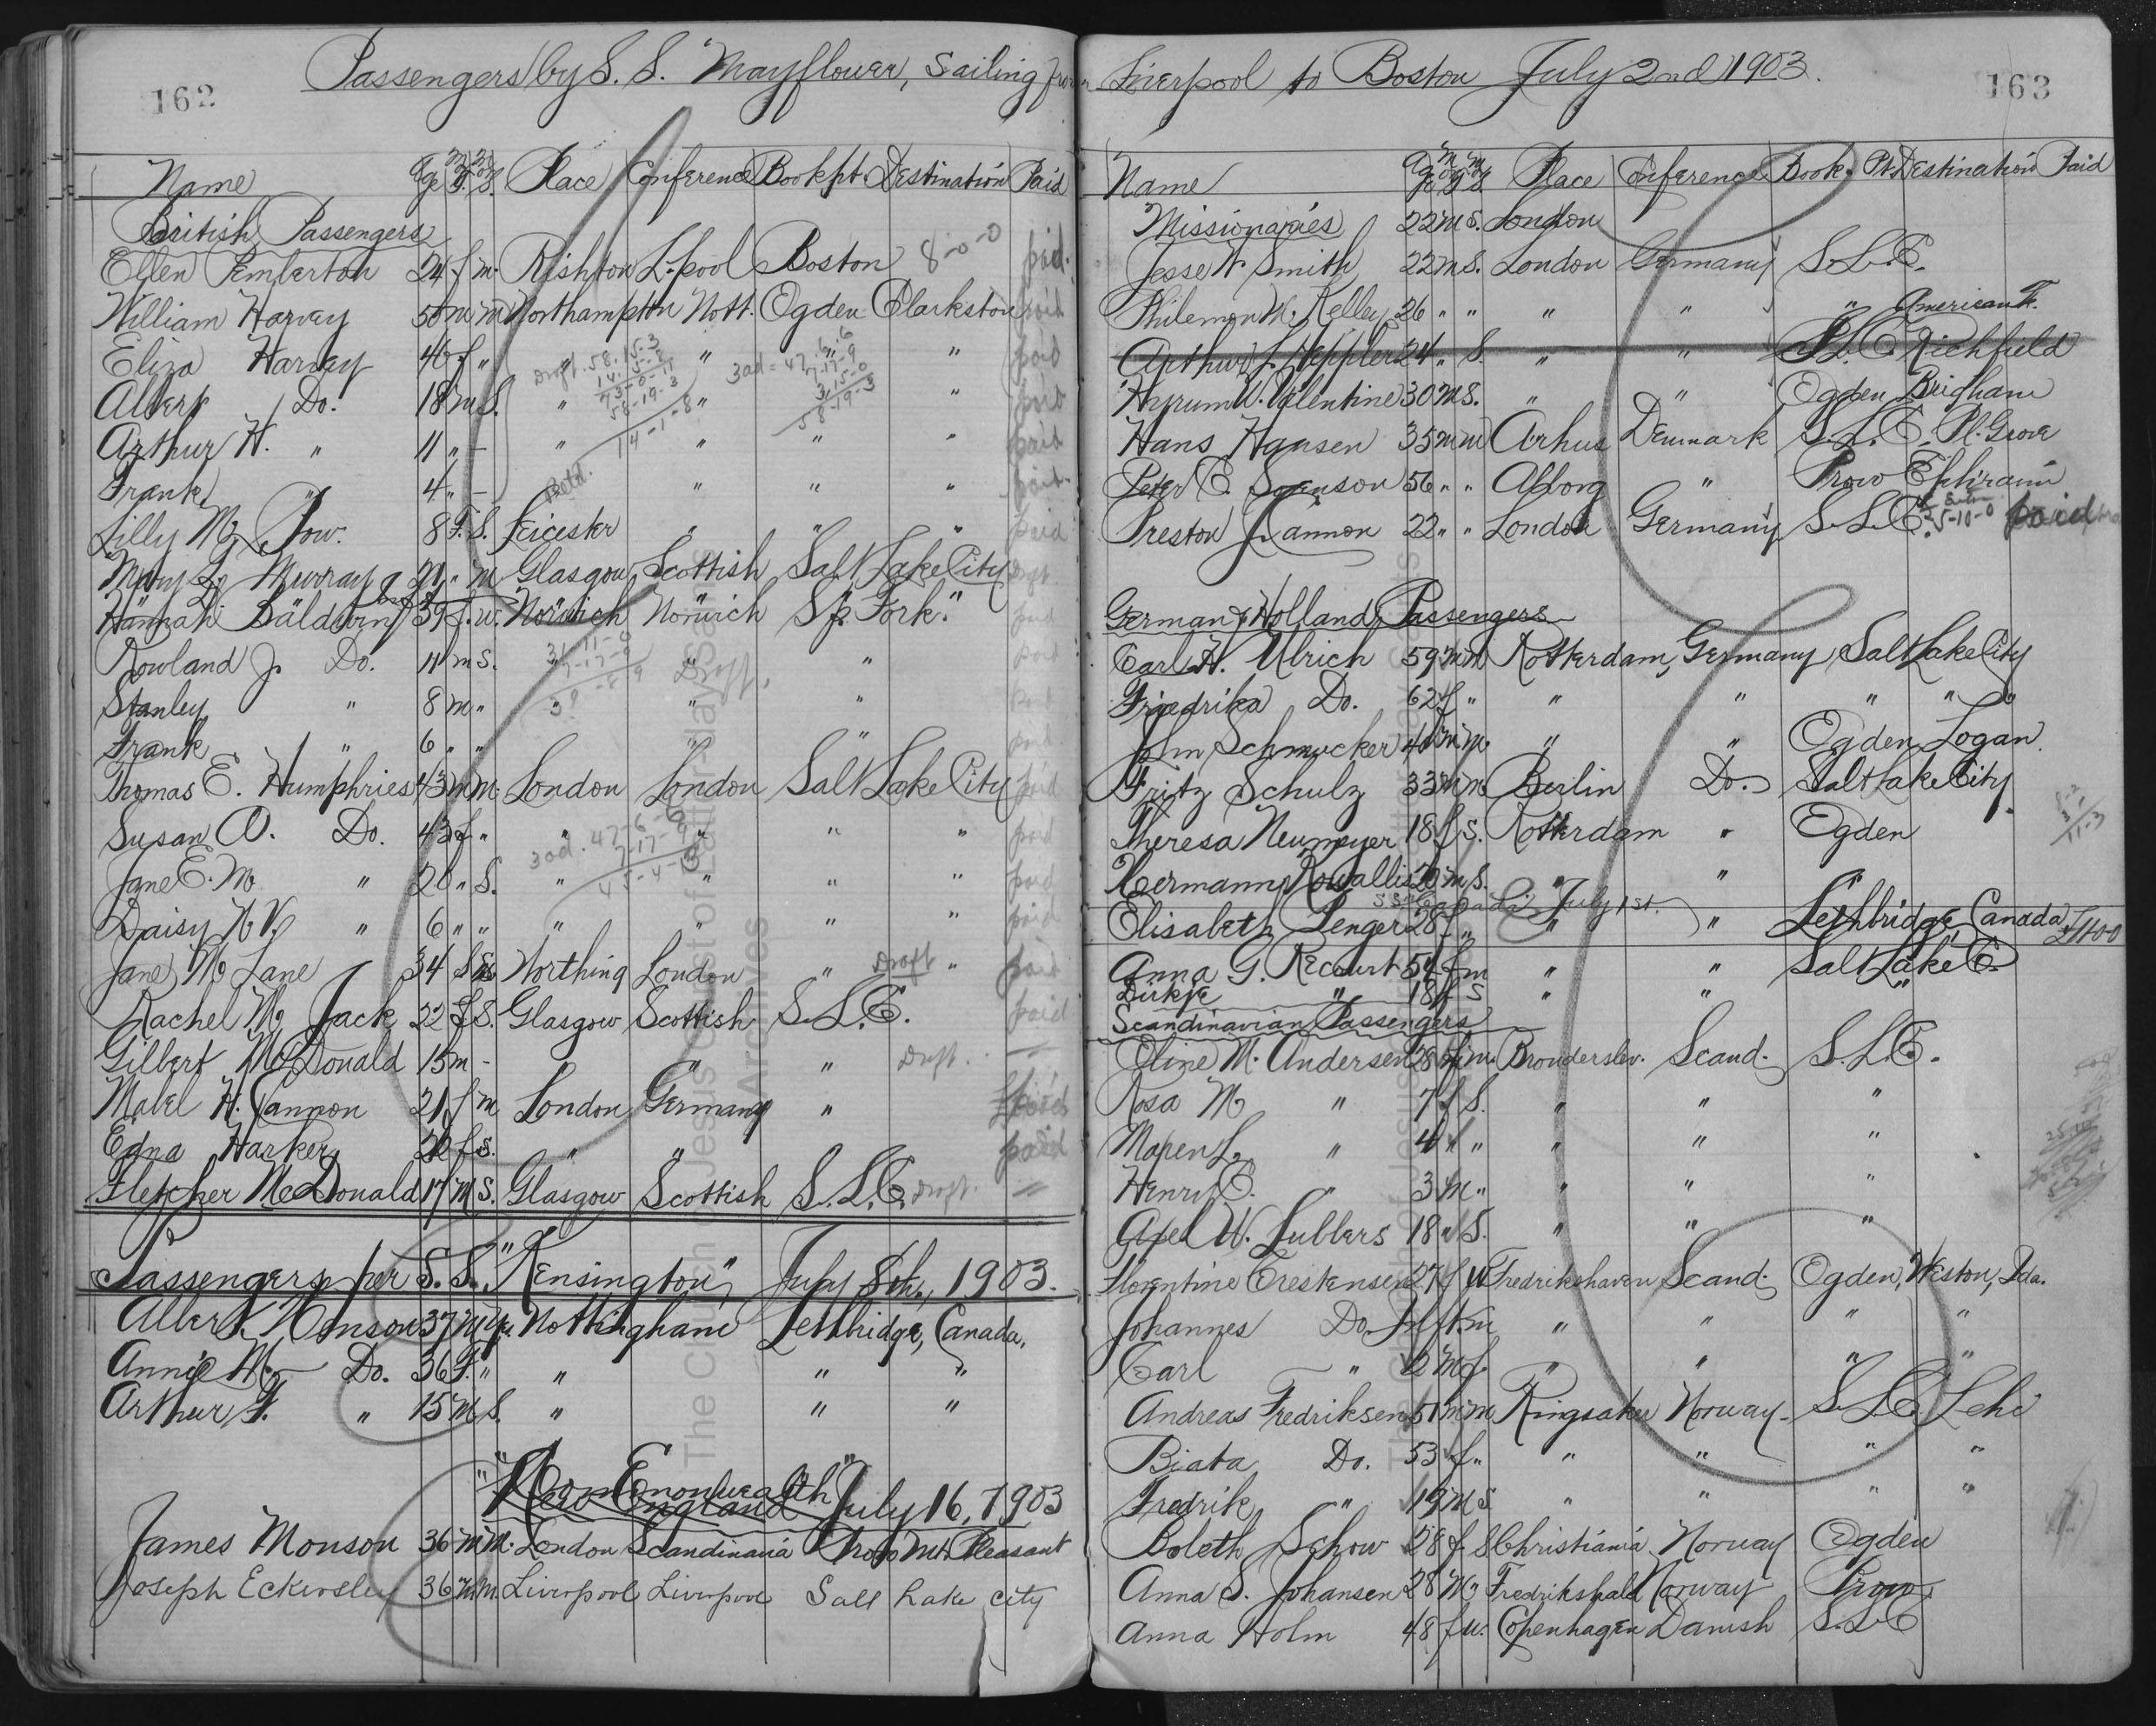 162
Passengers by S. S. Mayflower, Sailing from
Name Age M. F. M. S. Place Conference Book pt. Destination Paid
British Passengers
Ellen Pemberton 24 f m. Rishton L.pool Boston 8-0-0 paid.
William Harvey 50 m m Northampton Nott. Ogden Clarkston paid
Eliza Harvey 46 f " " " " paid
Draft. 58.15.3
14.5.8
73-0-11
58-19.3
14-1-8
3ad = 47.6.6
7.17-9
3.15-0
58-19-3
Albert Do. 18 m S. " " " paid
Arthur H. " 11 " - " " " " paid
Frank " 4 " - " " " paid
Lilly M. Pow. 8 F. S. Leicester " " " paid
Mary L. Murray 21 " m Glasgow Scottish Salt Lake City Draft
Hannah Baldwin 39 f. w. Norwich Norwich Sp. Fork. paid
Rowland J. Do. 11 m S. " " paid
31-11-0
7-17-9
39-8-9
Draft.
Stanley " 8 m " " " " paid
Frank " 6 " " " " paid
Thomas E. Humphries 43 m m. London London Salt Lake City paid
Susan O. Do. 43 f " " " " " paid
3ad. 47-6-6
7-17-9
Jane E. M. " 20 " S. " " " " paid
Daisy N. V. " 6 " " " " " paid
Jane M. Lane 34 f S. Worthing London " Draft " paid
Rachel M. Jack 22 f S. Glasgow Scottish S. L. C. paid
Gilbert McDonald 15 m - " " " Draft.
Mabel H. Cannon 21 f m London Germany " paid
Edna Harker 26 f s. " " paid
Fletcher McDonald 17 m S. Glasgow Scottish S. L. C. Draft.
Passengers per S. S. "Kensington" July 8th, 1903.
Albert Monson 37 m m. Nottingham Lethbridge, Canada.
Annie M. Do. 36 F. " " " "
Arthur F. " 15 m S. " " "
"Commonwealth"
New England July 16, 1903
James Monson 36 m m. London Scandinavia Provo Mt. Pleasant
Joseph Eckersley 36 m m. Liverpool Liverpool Salt Lake City
163
Liverpool to Boston July 2nd 1903.
Name Age M F M S Place Conference Book. Pt. Destination Paid
Missionaries 22 m s. London
Jesse W. Smith 22 m S. London Germany S. L. C.
Philemon M. Kelley 26 " " " " " American F.
Arthur L. Heppler 24 " S. " " S. L. C. Richfield
Hyrum W. Valentine 30 m S. " " Ogden Brigham
Hans Hansen 35 m m Arhus Denmark S. L. C. Pl. Grove
Peter C. Sorenson 56 " " Alborg " Provo Ephraim
Preston J. Cannon 22 " " London Germany S. L. C. 5-10-0 paid
German & Holland Passengers
Carl H. Ulrich 59 m m Rotterdam, Germany Salt Lake City
Friedrika Do. 62 f " " " " " "
John Schmucker 40 m m. " " Ogden Logan.
Fritz Schulz 33 m m. Berlin Do. Salt Lake City
Theresa Neumeyer 18 f s. Rotterdam " Ogden
Hermann Kowallis 20 m S. " "
July 1st.
Elisabeth Lenger 28 f " " " Lethbridge, Canada
Anna G. Recourt 54 f m " " Salt Lake C.
Dirkje " 18 f s " " "
Scandinavian Passengers
Eline M. Andersen 28 f m. Brouderslev. Scand. S. L. C.
Rosa M " 7 f S. " " "
Maren L. " 4 f " " " "
Henry C. " 3 m " " " "
Axel W. Lublers 18 " S. " " "
Florentine Crestensen 27 f W Fredrikshaven Scand. Ogden, Weston, Ida.
Johannes Do. " " " "
Carl " " " " "
Andreas Fredriksen 51 m m Ringsaker Norway S. L. C. Lehi
Biata Do. 53 f " " " " "
Fredrik " 19 m S " " " "
Boleth Schow 28 f S Christiania Norway Ogden
Anna S. Johansen 28 " " Fredrikshald Norway Provo
Anna Holm 48 f w. Copenhagen Danish S. L. C